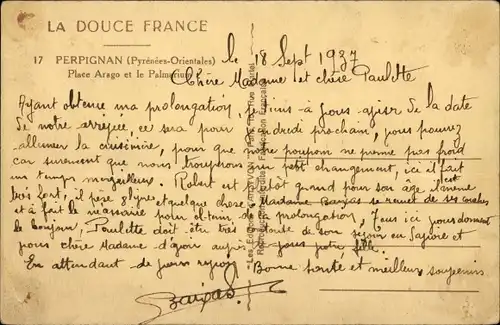 LA DOUCE FRANCE
17 PERPIGNAN (Pyrénées-Orientales)
Place Arago et le Palmarium
le 18 Sept 1937
Chère Madame et chère Paulette
Ayant obtenue ma prolongation, je viens à vous aviser de la date
de notre arrivée, ce sera pour vendredi prochain, vous pouvez
allumer la cuisinière, pour que notre poupon ne prenne pas froid
car surement que nous trouverons un petit changement, ici il fait
un temps merveilleux. Robert est plutôt grand pour son âge il est même
très fort, il pèse 8 et quelque chose. Madame Barjas se remet de ses couches
et à fait le nécessaire pour obtenir de la prolongation, Tous ici vous donnent
le bonjour, Paulette doit être très de son séjour en Savoie et
vous chère Madame d'avoir auprès de vous votre fille.
En attendant de vous Bonne santé et meilleur souvenir